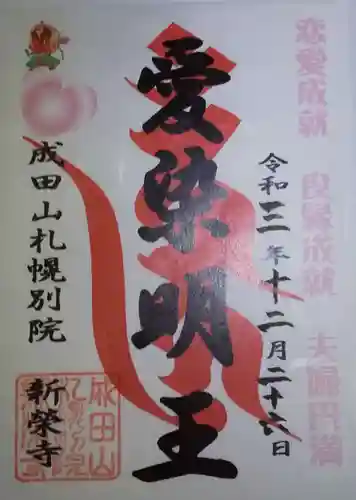 恋愛成就 良縁成就 夫婦円満
令和三年十二月二十六日
愛染明王
成田山札幌別院
新榮寺
成田山